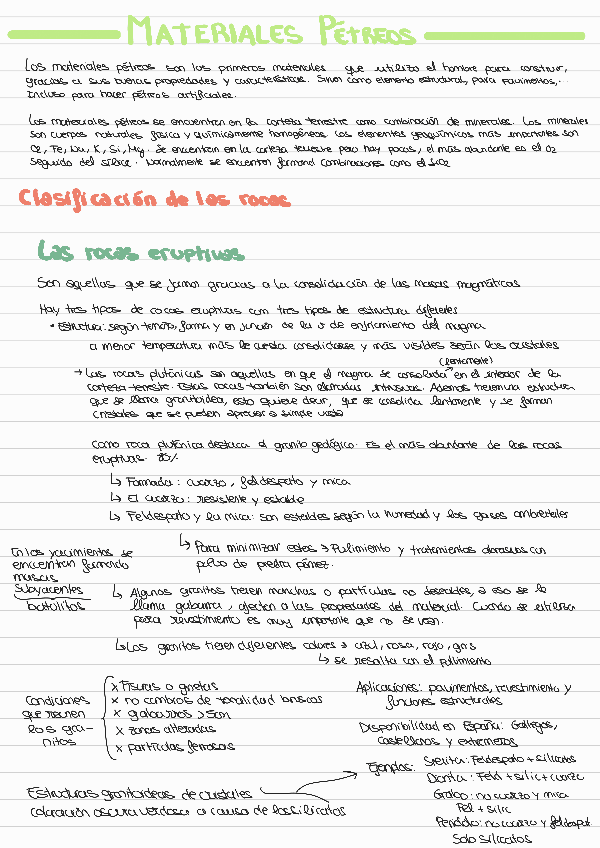 MATERIALES PÉTREOS
Los materiales pétreos son los primeros materiales que utilizo el hombre para construir,
gracias a sus buenas propiedades y características. Sirven como elemento estructural, para pavimentos,..
Incluso para hacer pétreos artificiales.
Los materiales pétreos se encuentran en la corteza terrestre como combinación de minerales. Los minerales
son cuerpos naturales física y químicamente homogéneos. Los elementos geoquímicos más importantes son
Fe, Na, K, Si, Mg. Se encuentran en la corteza terrestre pero hay pocos, el más abundante es el O2
seguido del sílice. Normalmente se encuentran formand combinaciones como el SiO2
Clasificación de las rocas
Las rocas eruptivas
Son aquellas que se forman gracias a la consolidación de las masas magmáticas
Hay tres tipos de rocas eruptivas con tres tipos de estructura diferentes
• Estructura: según tamaño, forma y en función de la v de enfriamiento del magma
a menor temperatura más le cuesta consolidarse y más visibles serán los cristales
(lentamente)
→ Las rocas plutónicas son aquellas en que el magma se consolida en el interior de la
corteza terrestre. Estas rocas también son llamadas intrusivas. Además tienen una estructura
que se llama granitoidea, esto quiere decir, que se consolida lentamente y se forman
cristales que se pueden apreciar a simple vista
Como roca plutónica destaca el granito geológico. Es el más abundante de las rocas
eruptivas.
↳ Formada: cuarzo, feldespato y mica
↳ El cuarzo: resistente y estable
↳ Feldespato y la mica: son estables según la humedad y los gases ambientales
↳ Para minimizar estos → Pulimiento y tratamientos abrasivos con
polvo de piedra pómez.
En los yacimientos se
encuentran formando
masas
subyacentes
batolitos
↳ Algunos granitos tienen manchas o partículas no deseables, a eso se le
llama gabarro, afectan a las propiedades del material. Cuando se utiliza
para revestimiento es muy importante que no se vean.
↳ Los granitos tienen diferentes colores → azul, rosa, rojo, gris
↳ se resalta con el pulimiento
Condiciones
que tienen
los gra-
nitos
x Fisuras o grietas
x no cambios de tonalidad bruscos
x gabarros > 5cm
x zonas alteradas
x partículas ferrosas
Aplicaciones: pavimentos, revestimiento y
funciones estructurales
Disponibilidad en España: Gallegos,
castellanos y extremeños
Ejemplos: Sienita: Feldespato + silicatos
Diorita: Feld + silic + cuarzo
Gabro: no cuarzo y mica
Fel + silic
Peridotio: no cuarzo y feldespat
Solo silicatos
Estructuras granitoideas de cristales
coloración oscura verdosa a causa de los silicatos